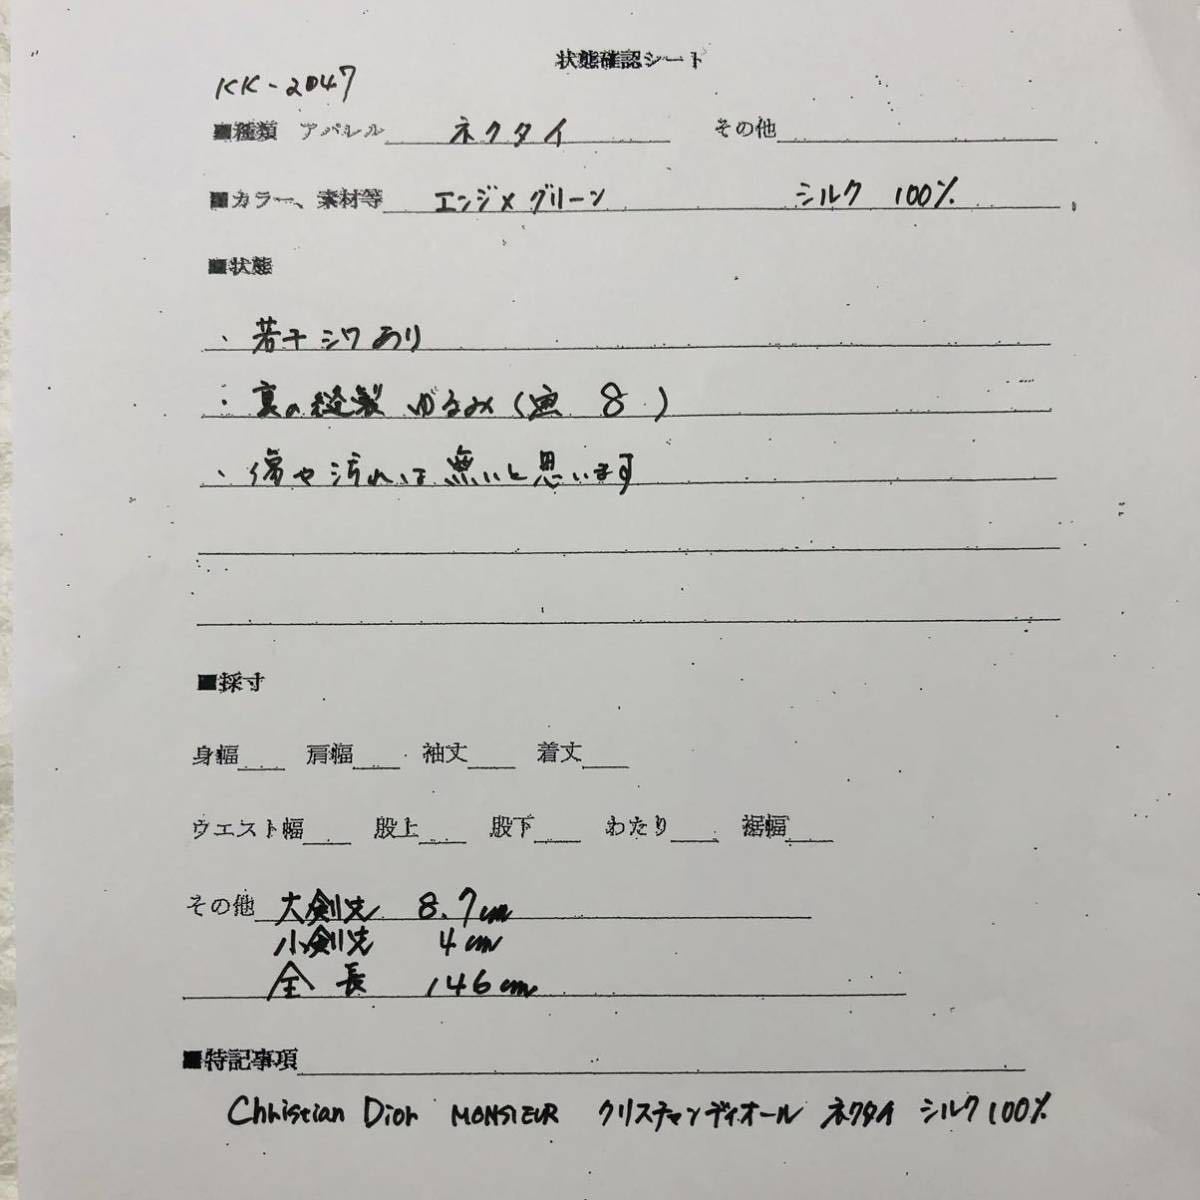 状態確認シート
KK-2047
■種類 アパレル ネクタイ その他
■カラー、素材等 エンジ×グリーン シルク 100%
■状態
・若干シワあり
・裏の縫製 ゆるみ( 8 )
・傷や汚れは無いと思います
■採寸
身幅 肩幅 袖丈 着丈
ウエスト幅 股上 股下 わたり 裾幅
その他 大剣先 8.7cm
小剣先 4cm
全長 146cm
■特記事項
Christian Dior MONSIEUR クリスチャンディオール ネクタイ シルク100%